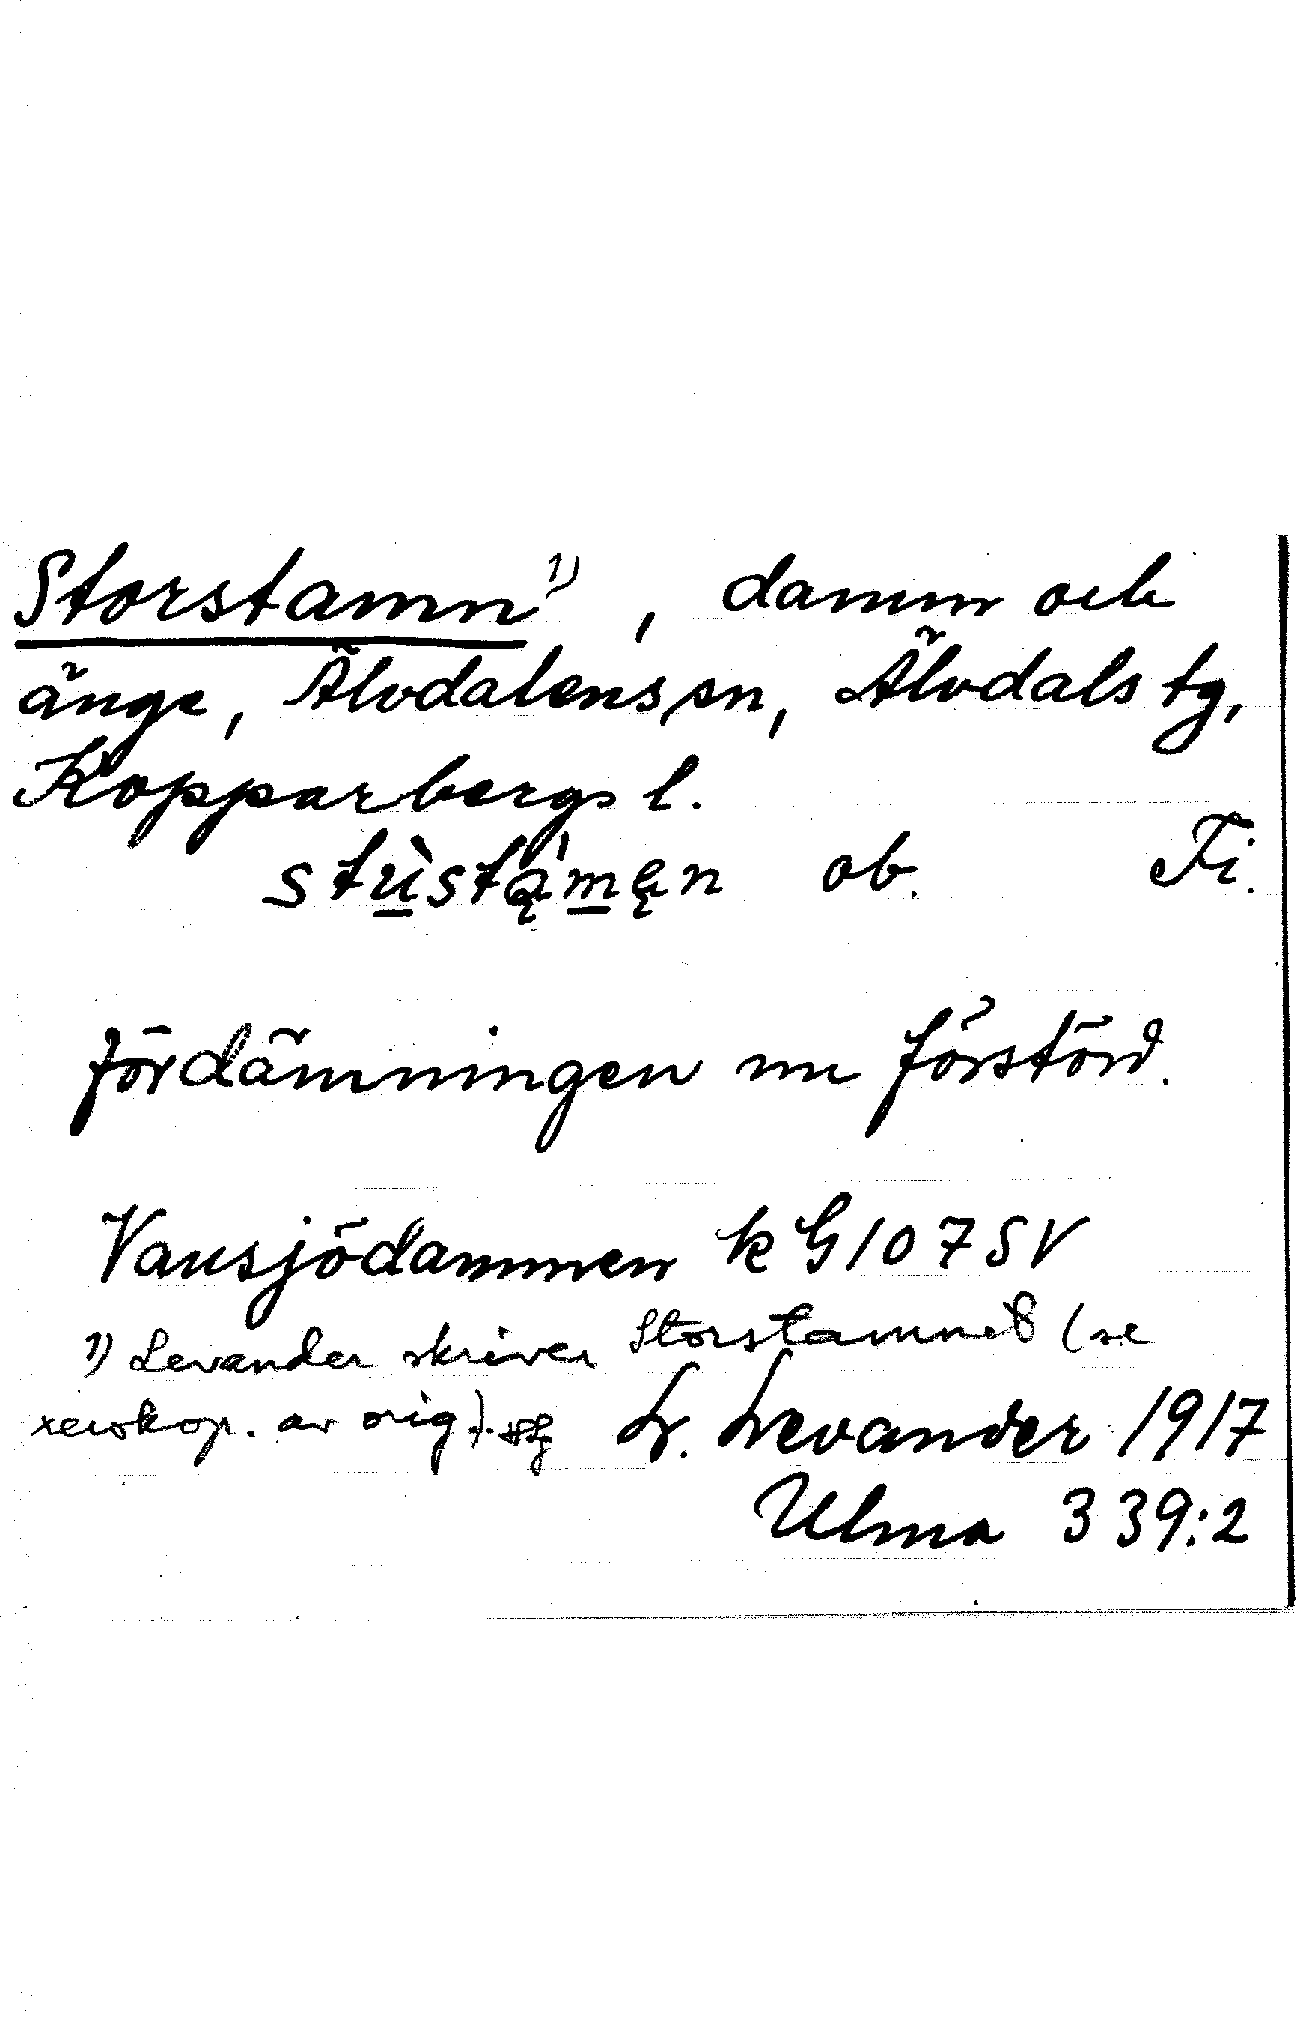 Storstamn ¹⁾, damm och
änge, Älvdalens sn, Älvdals tg,
Kopparbergs l.
stù̲stą̀m̲ęn ob. Fi.
fördämningen nu förstörd.
Vansjödammen k G 107 SV
1) Levander skriver Storstamned (se
xeroxkop. av orig).
L. Levander 1917
Ulma 339:2